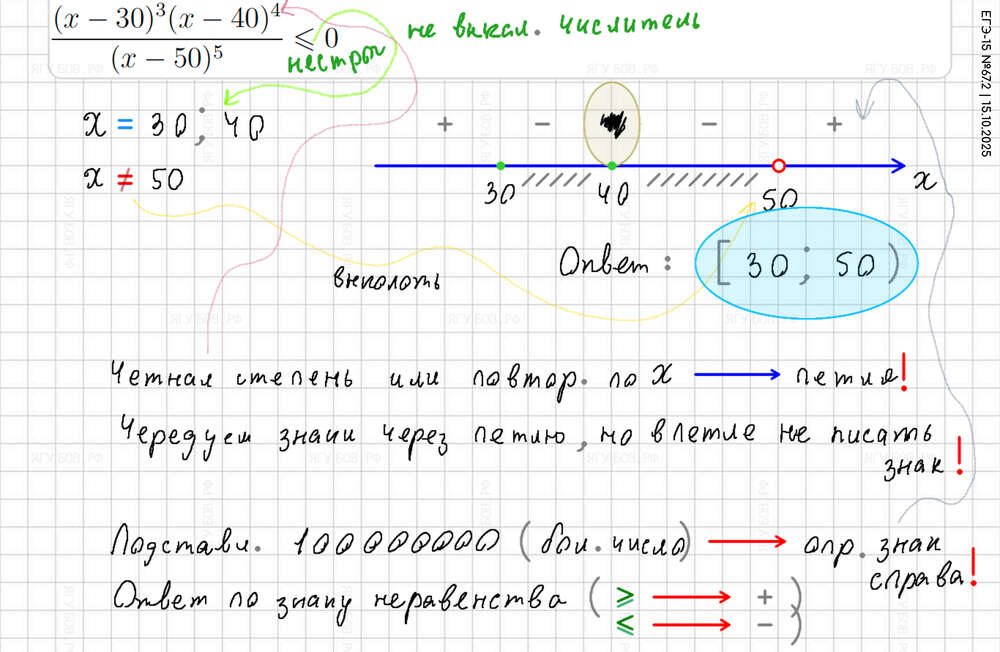 (x − 30)³(x − 40)⁴
(x − 50)⁵
⩽ 0
не выкал. числитель
нестрог
x = 30 ; 40
x ≠ 50
+ − − +
30 40 50 x
Ответ : [ 30 ; 50 )
выколоть
Четная степень или повтор. по x → петля!
Чередуем знаки через петлю, но в петле не писать
знак !
Подставл. 100000000 ( бол. число) → опр. знак
справа!
Ответ по знаку неравенства ( ≥ → + )
≤ → −
ЕГЭ-15 №672 | 15.10.2025
ЯГУБОВ.РФ